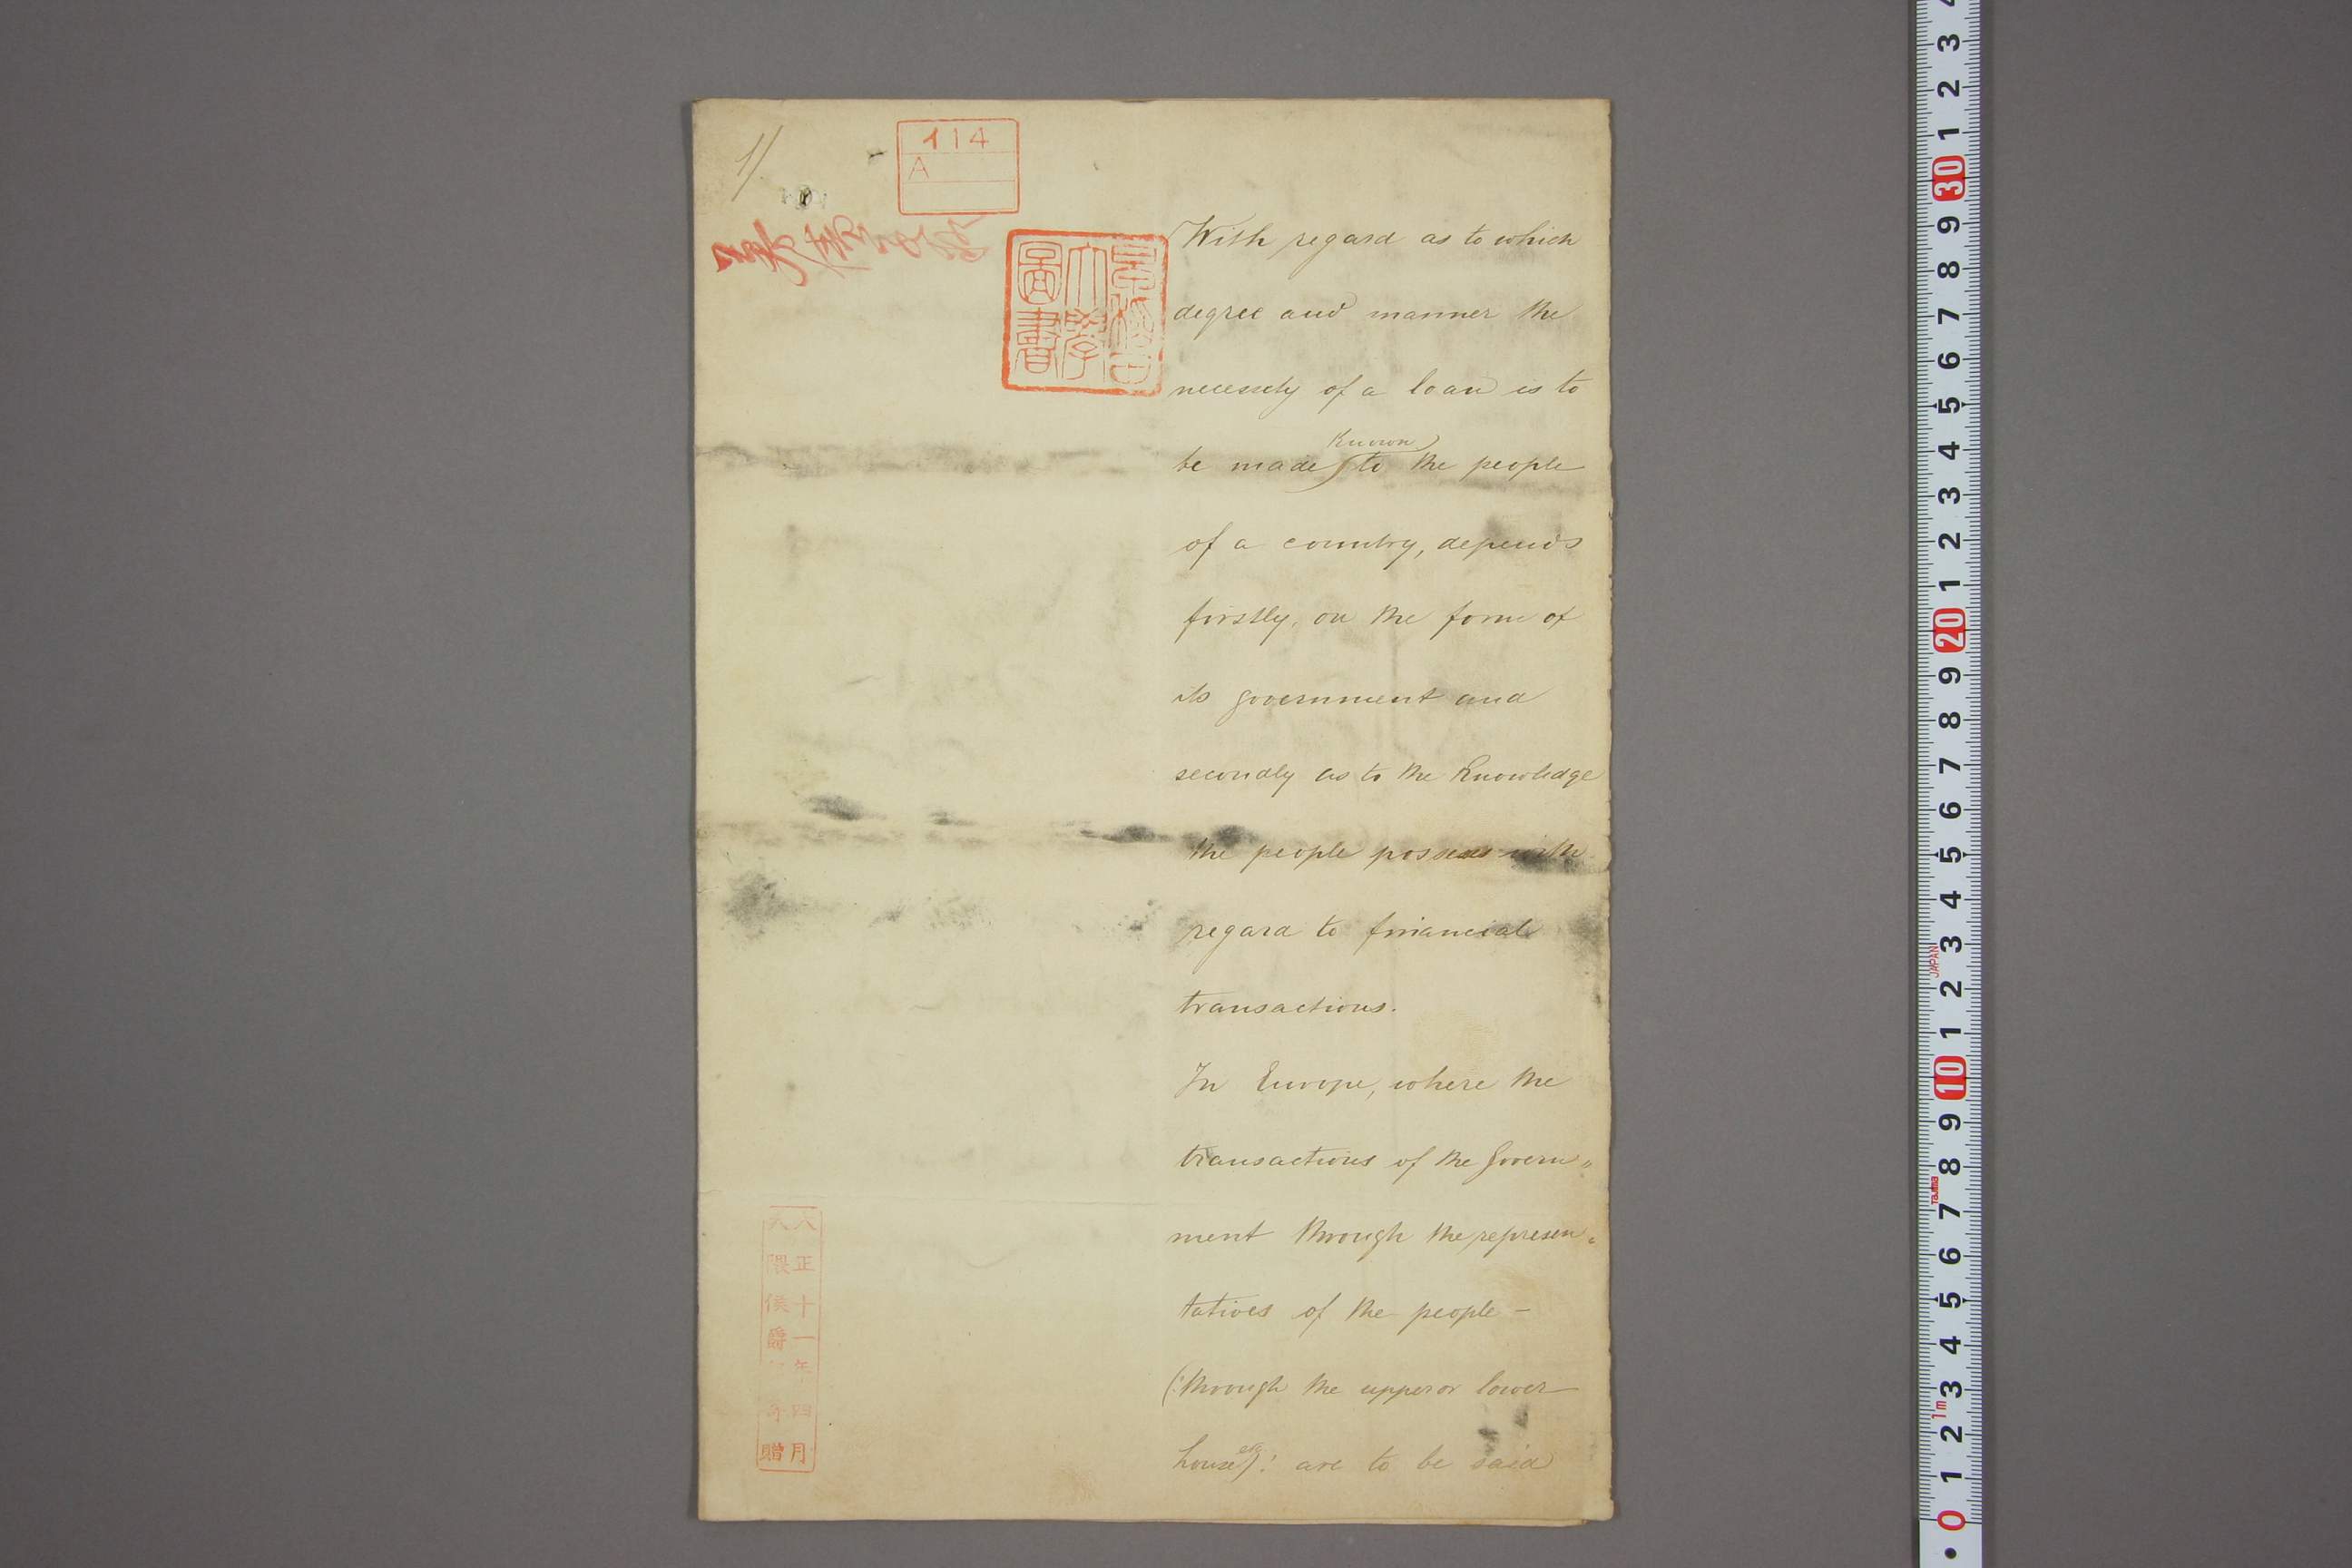 1/.
114
A
早稲田
大學
圖書
With regard as to which
degree and manner the
necessity of a loan is to
known
be made to the people
of a country, depends
firstly, on the form of
its government and
secondly as to the knowledge
the people possess with
regard to financial
transactions.
In Europe, where the
transactions of the Govern„
ment through the represen„
tatives of the people –
(: through the upper or lower
house etc): are to be said
大正十一年四月
大隈侯爵 寄贈
3
2
1
30
9
8
7
6
5
4
3
2
1
20
9
8
7
6
5
4
3
JAPAN
2
1
10
9
8
Tajima
7
6
5
4
3
1m
2
1
0